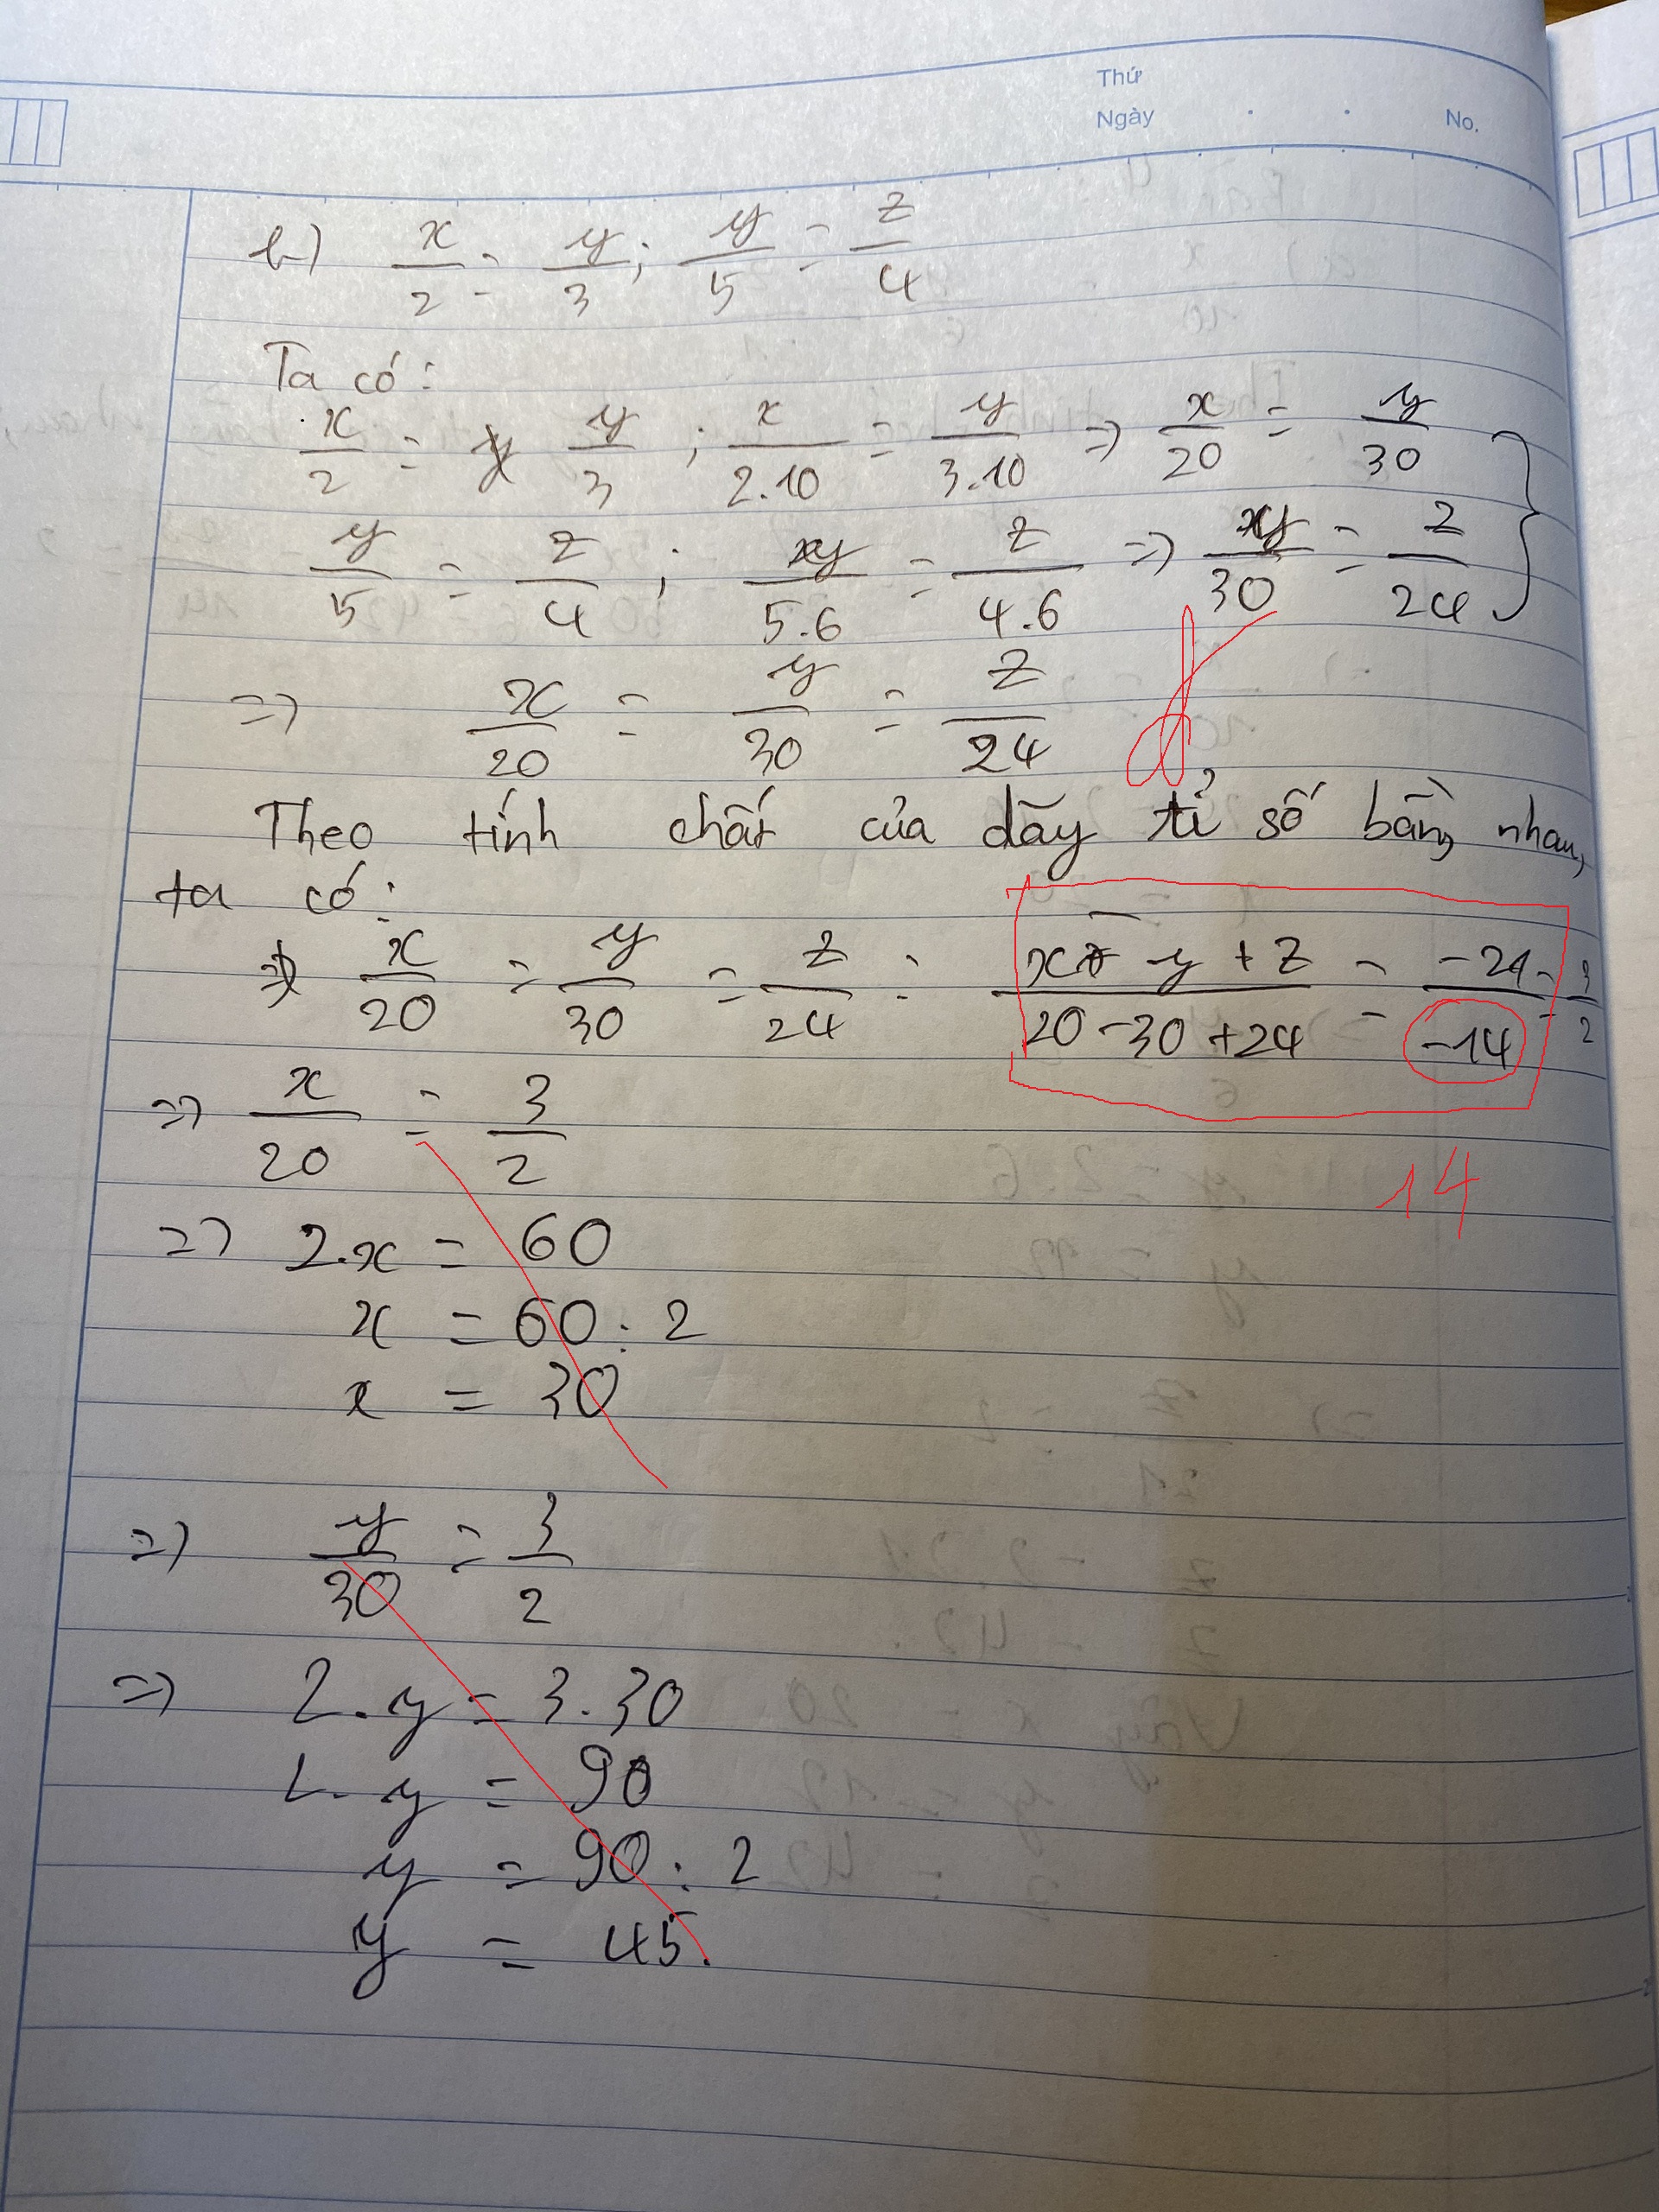 Thứ
Ngày No.
b) x/2 = y/3; y/5 = z/4
Ta có:
x/2 = y/3 ; x/2.10 = y/3.10 => x/20 = y/30
y/5 = z/4 ; y/5.6 = z/4.6 => y/30 = z/24
=> x/20 = y/30 = z/24 đ
Theo tính chất của dãy tỉ số bằng nhau,
ta có:
x/20 = y/30 = z/24 = x - y + z/20 - 30 + 24 = -21/-14 = 3/2
14
=> x/20 = 3/2
=> 2.x = 60
x = 60 : 2
x = 30
=> y/30 = 3/2
=> 2.y = 3.30
2.y = 90
y = 90 : 2
y = 45.